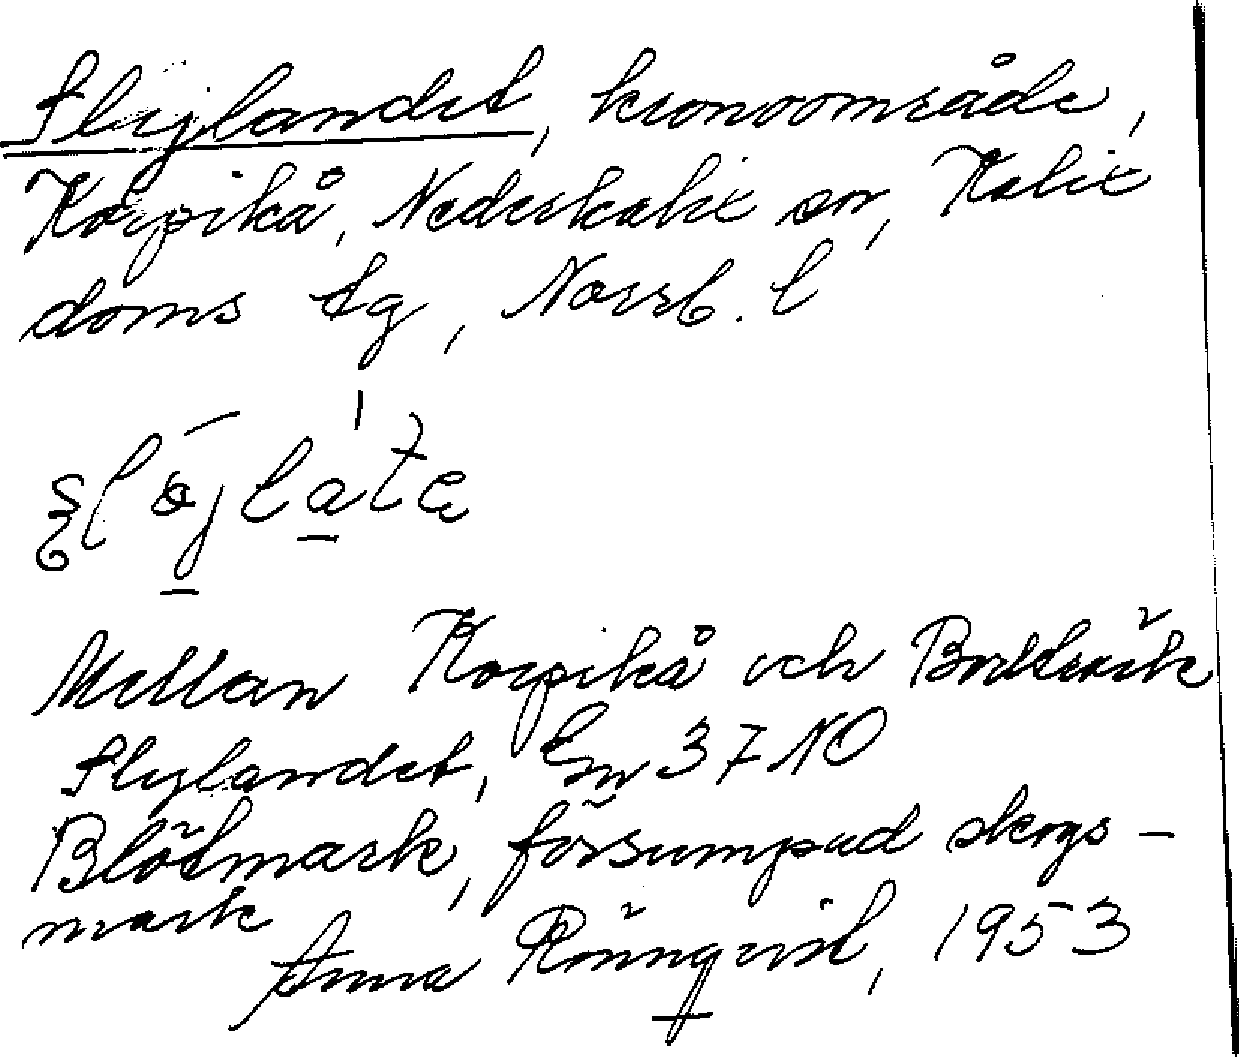 Slyjlandet, kronoområde,
Korpikå, Nederkalix sn, Kalix
doms tg, Norrb. l
Mellan Korpikå och Bodträsk
Slyjlandet, Em 37 NO
Blötmark, försumpad skogs-
mark
Anna Rönnqvist, 1953